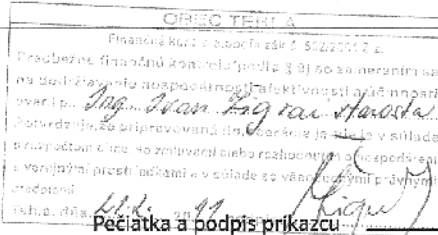 OBEC TEHLA
Finančná kontrola podľa zák. č. 502/2001 Z.z.
Predbežnú finančnú kontrolu podľa § 9 so zameraním sa
na dodržiavanie hospodárnosti, efektívnosti a účinnosti
overil p. Ing. Ivan Žigrai starosta
Potvrdzuje, že pripravovaná fin. operácia je v súlade
s rozpočtom obce, so zmluvami alebo rozhodnutím o hospodárení
s verejnými prostriedkami a v súlade so všeobecnými právnymi
predpismi.
Tehla, dňa
Pečiatka a podpis príkazcu